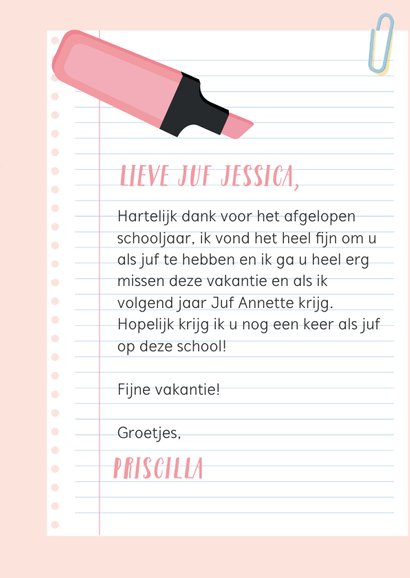 LIEVE JUF JESSICA,
Hartelijk dank voor het afgelopen
schooljaar, ik vond het heel fijn om u
als juf te hebben en ik ga u heel erg
missen deze vakantie en als ik
volgend jaar Juf Annette krijg.
Hopelijk krijg ik u nog een keer als juf
op deze school!
Fijne vakantie!
Groetjes,
PRISCILLA